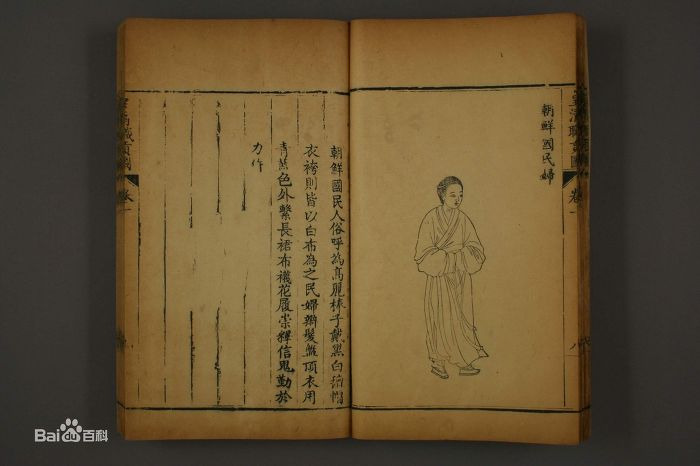 皇清職貢圖 卷一
朝鮮國民婦
朝鮮國民人俗呼為高麗棒子戴黑白氊帽
衣袴則皆以白布為之民婦辮髮盤頂衣用
青藍色外繫長裙布襪花履崇釋信鬼勤於
力作
皇清職貢圖 卷一
Bai百科